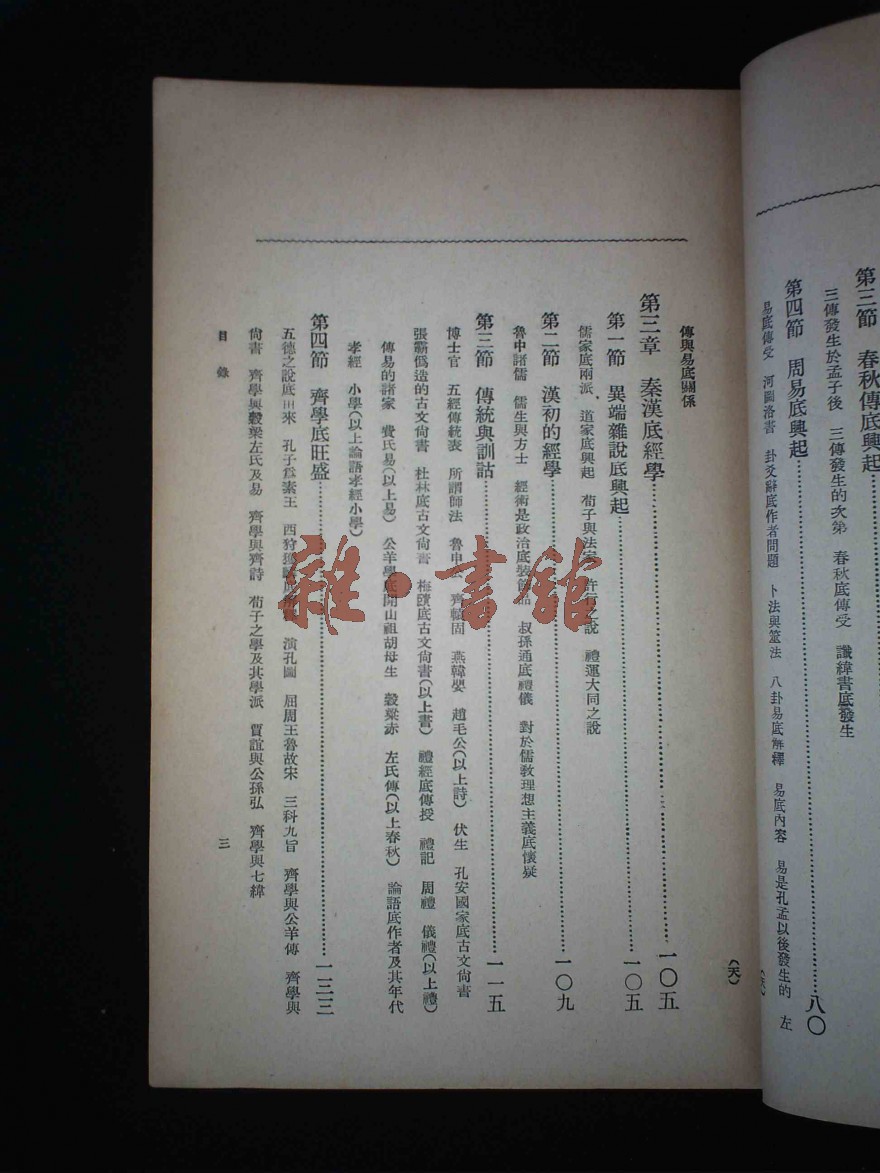 第三節　春秋傳底興起
三傳發生於孟子後　三傳發生的次第　春秋底傳受　讖緯書底發生
第四節　周易底興起……八〇
易底傳受　河圖洛書　卦爻辭底作者問題　卜法與筮法　八卦易底解釋　易底內容　易是孔孟以後發生的　左
傳與易底關係
第三章　秦漢底經學……一〇五
第一節　異端雜說底興起……一〇五
儒家底兩派、道家底興起　荀子與法家　許行之說　禮運大同之說
第二節　漢初的經學……一〇九
魯中諸儒　儒生與方士　經術是政治底裝飾品　叔孫通底禮儀　對於儒敎理想主義底懷疑
第三節　傳統與訓詁……一一五
博士官　五經傳統表　所謂師法　魯申公　齊轅固　燕韓嬰　趙毛公(以上詩)　伏生　孔安國家底古文尙書
張霸僞造的古文尙書　杜林底古文尙書　梅賾底古文尙書(以上書)　禮經底傳授　禮記　周禮　儀禮(以上禮)
傳易的諸家　費氏易(以上易)　公羊學底開山祖胡母生　穀梁赤　左氏傳(以上春秋)　論語底作者及其年代
孝經　小學(以上論語孝經小學)
第四節　齊學底旺盛……一三三
五德之說底由來　孔子爲素王　西狩獲麟底　演孔圖　屈周王魯故宋　三科九旨　齊學與公羊傳　齊學與
尙書　齊學與穀梁左氏及易　齊學與齊詩　荀子之學及其學派　賈誼與公孫弘　齊學與七緯
目錄
三
(天)
雜·書館